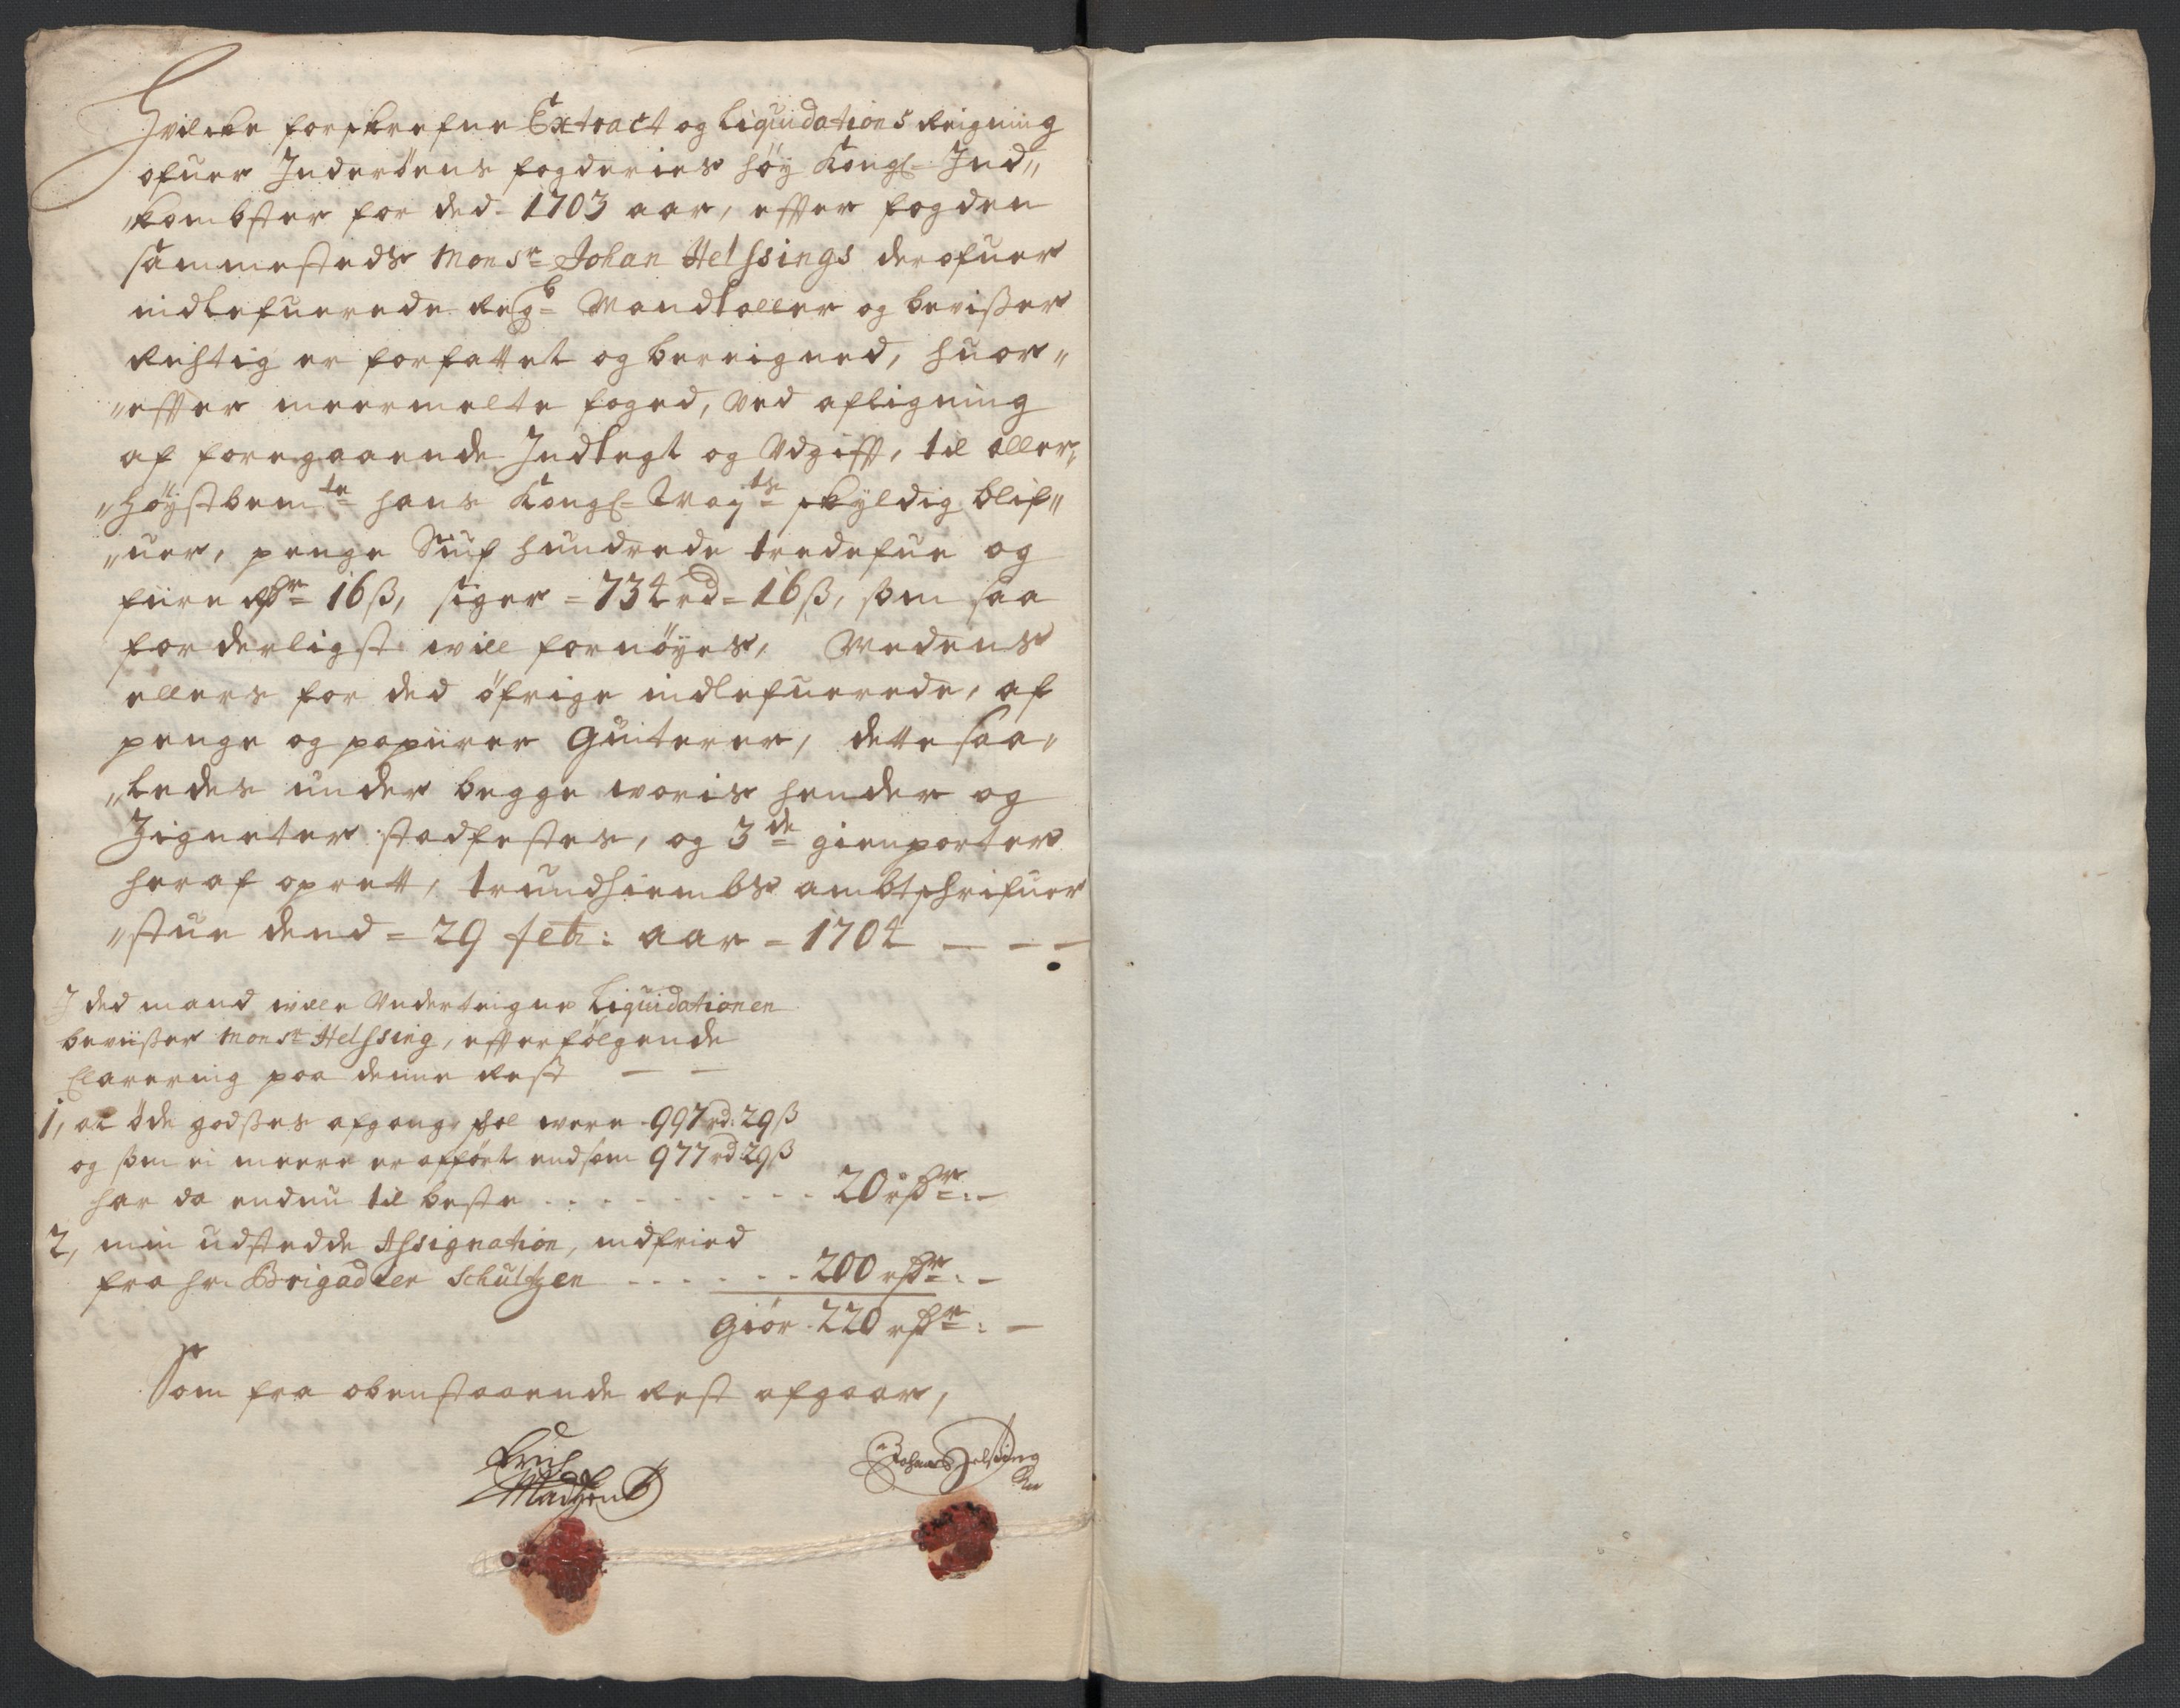 Hvilcke forskrefne Extract og Liquidations Reigning
ofuer Inderöens fogderies höy Kongl= Ind„
„kombster for ded= 1703 aar, effter fogden
sammesteds Monsr= Johan Helssings derofuer
indlefuerede Regb= Mandtaller og beviisser
Richtig er forfattet og bereigned, huor„
„effter meermelte foged, Ved afligning
af foregaaende Indtegt og Vdgifft, til aller„
„höystbemte= hans Kongl= Mayts= skyldig blif„
„uer, penge Siuf hundrede tredefue og
fiire Rdr= 16 ß, siger = 734 rd= 16 ß, som saa
forderligst will fornöyes, Medens
ellers for ded öfrige indlefuerede, af
penge og papiirer Quiterer, dette saa„
„ledes under begge woris hender og
Zigneter stadfestes, og 3de= gienparter
heraf oprett, trundhiembs ambtschrifuer
„stue dend = 29 feb: aar = 1704 — — —
I ded mand wille Vnderteigne Liquidationen
beviisser Monsr Helssing, effterfölgende
Clarering paa denne Rest — —
1, at öde godsses afgang skal were 997 rd: 29 ß
og som ei meere er afført end som 977 rd 29 ß
har da endnu til beste . . . . . . . . . . 20 rdr=: —
2, min udstedde Assignation, indfried
fra hr: Brigadeer Schultzen - - - - - - 200 rdr=: —
Giör 220 rdr=: —
Som fra obenstaaende Rest afgaar,
Erich
Madtzen
Johan Helssing